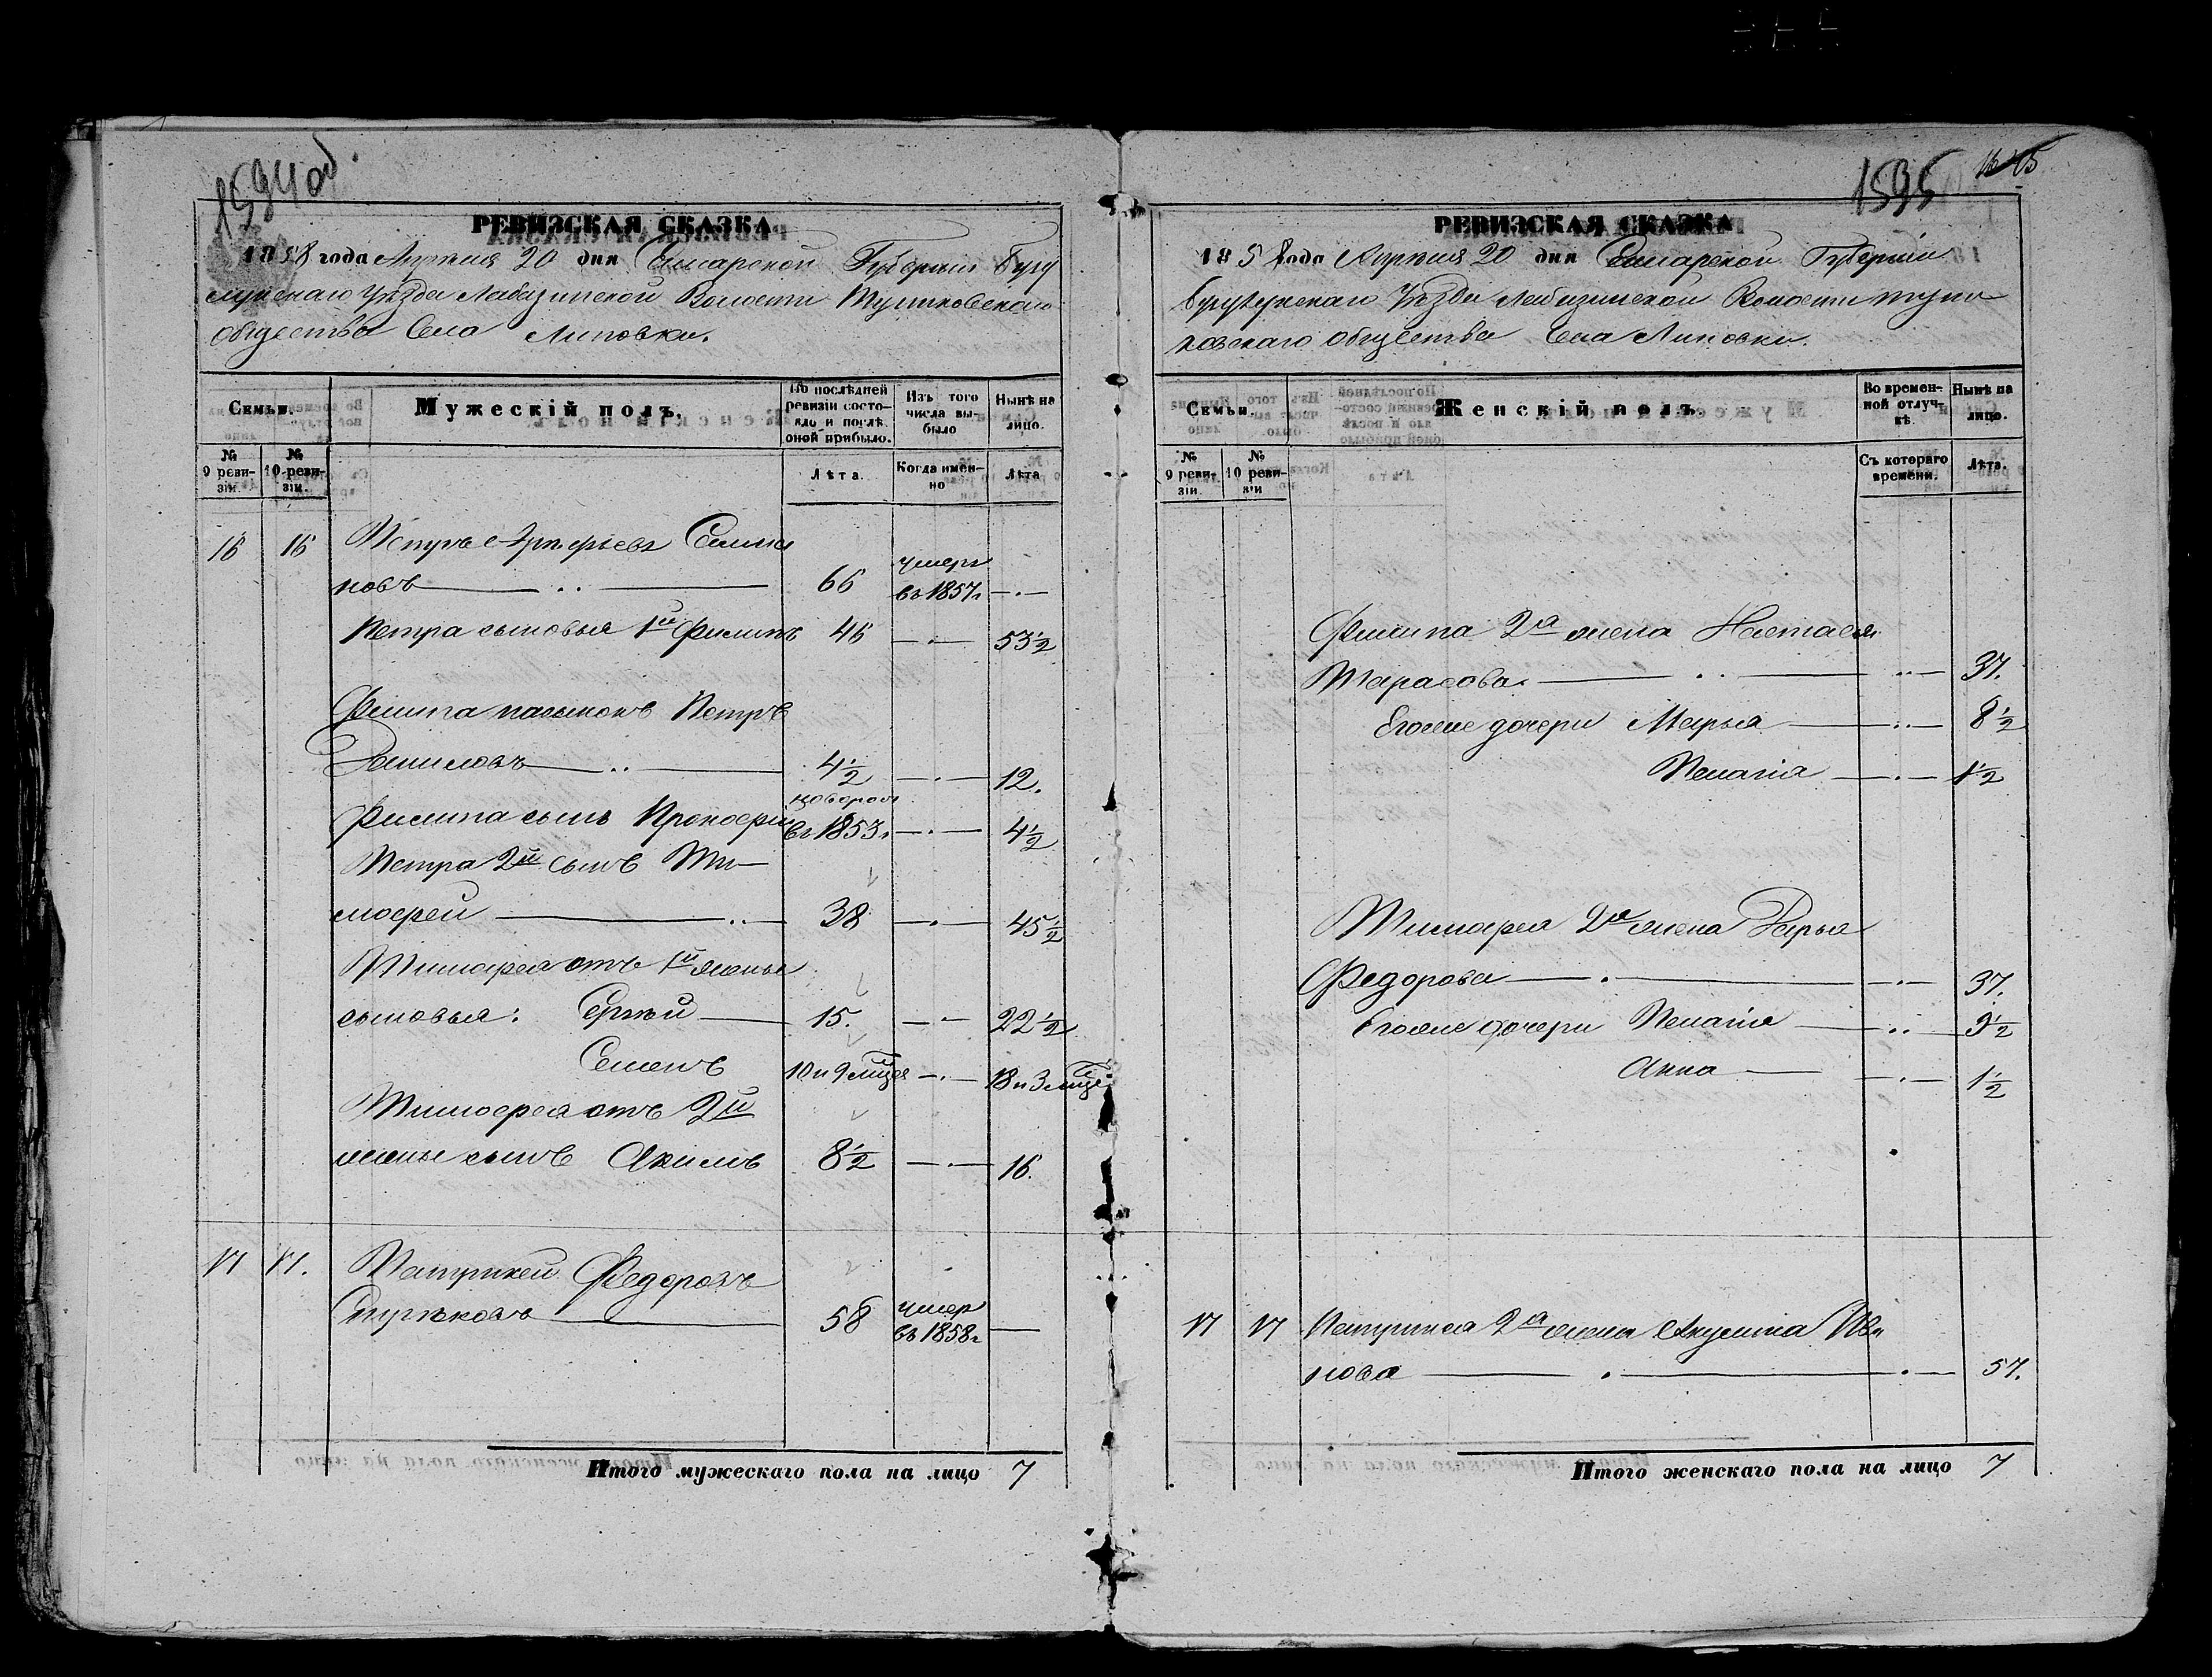 1594 об
РЕВИЗСКАЯ СКАЗКА
1858 года Апреля 20 дня Самарской Губернии Бугу
русланского Уезда Лабазинской Волости
общества Села Липовки.
Семьи.
Мужескій полъ.
По послѣдней ревизіи состояло и послѣ оной прибыло.
Изъ того числа выбыло
Нынѣ на лицо.
№ 9 ревизіи.
№ 10 ревизіи.
Лѣта.
Когда именно
Лѣта
16 16 Петръ Артемьевъ Сима
новъ 66 умеръ въ 1857г
Петра сыновья 1й Филипъ 46 53½
Филипа пасынокъ Петръ
Даниловъ 4½ 12.
Филипа сынъ Прокофий новорож въ 1853г 4½
Петра 2й сынъ Ти-
мофей 38 45½
Тимофея отъ 1й жены
сыновья: Сергѣй 15. 22½
Семенъ 10 и 9 мцев 18 и 3 мце
Тимофея отъ 2й
жены сынъ Акимъ 8½ 16.
17 17. Патрикей Федоровъ
58 умер въ 1858г
Итого мужескаго пола на лицо 7
1595
РЕВИЗСКАЯ СКАЗКА
1858 года Апреля 20 дня Самарской Губернии
Бугурусланского Уезда Лабазинской Волости
ковскаго общества Села Липовки.
Семьи.
Женскій полъ.
Во временной отлучкѣ.
Нынѣ на лицо.
№ 9 ревизіи
№ 10 ревизіи
Съ котораго времени.
Лѣта.
Филипа 2а жена Настасья
Тарасова 37.
Егоже дочери Марья 8½
Пелагія 1½
Тимофея 2а жена Дарья
Федорова 37.
Егоже дочери Пелагія 9½
Анна 1½
17 17 Патрикея 2а жена Акулина Ива
нова 57.
Итого женскаго пола на лицо 7